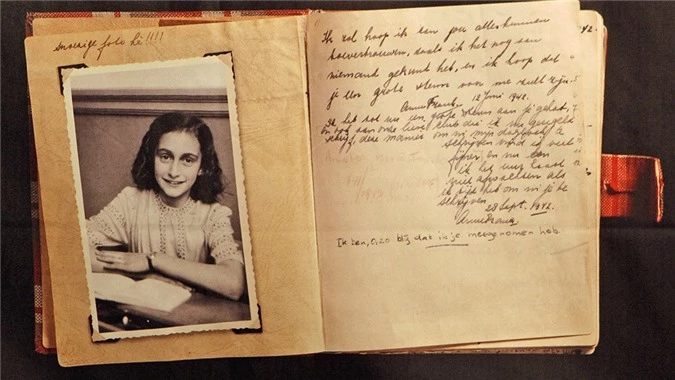 snoezige foto hè!!!!
Ik zal hoop ik aan jou alles kunnen
toevertrouwen, zoals ik het nog aan
niemand gekund heb, en ik hoop dat
je een grote steun voor me zult zijn.
Anne Frank. 12 Juni 1942.
Ik heb tot nu een grote steun aan jou gehad,
en ook aan onze lieve club die ik nu geregeld
schrijf, deze manier om in mijn dagboek te
schrijven vind ik veel
fijner en nu kan
ik het uur haast
niet afwachten als
ik tijd heb om in je te
schrijven.
28 Sept. 1942.
Anne Frank.
Ik ben, o, zo blij dat ik je meegenomen heb